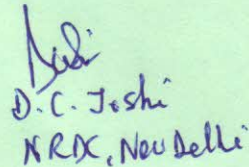 D. C. Joshi
NRDC, New Delhi